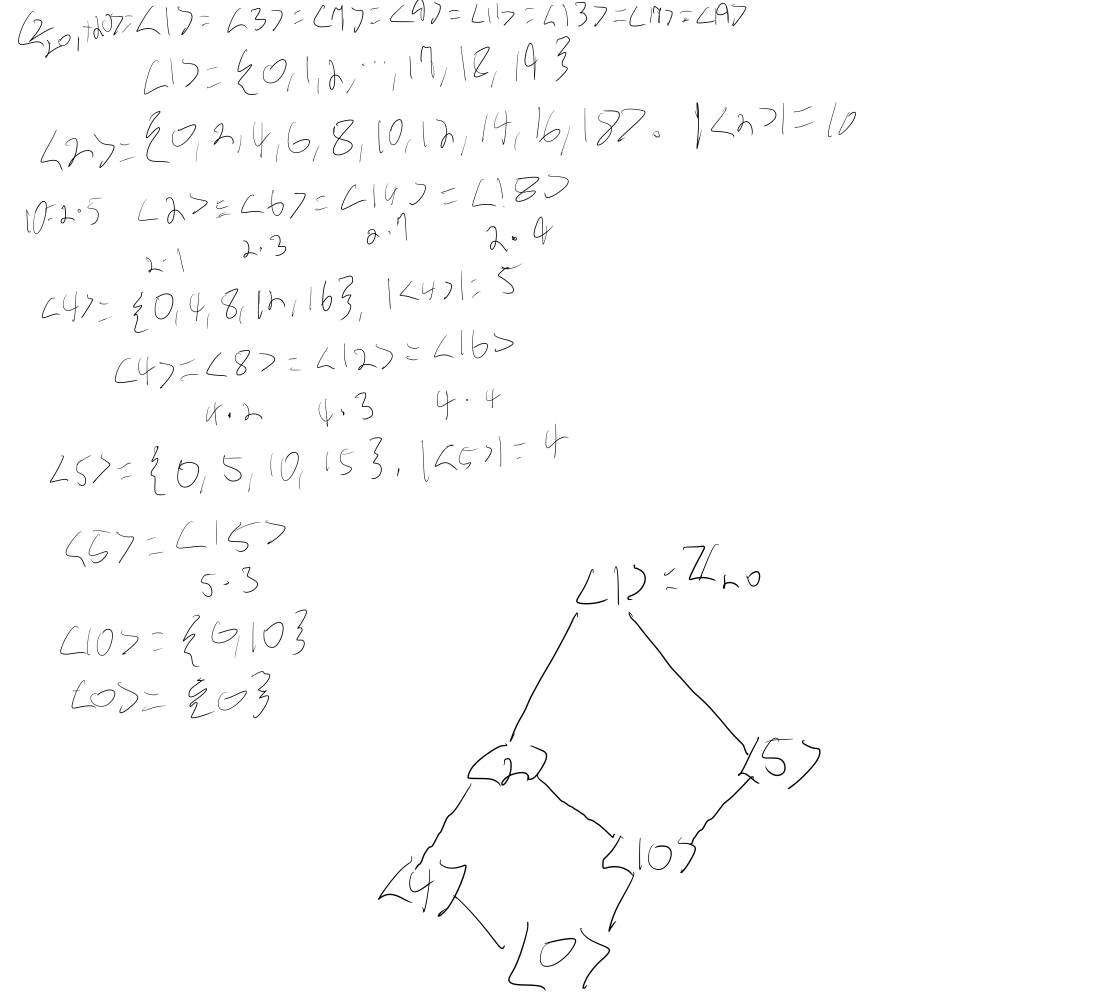 (Z₂₀,+₂₀)=<1>=<3>=<7>=<9>=<11>=<13>=<17>=<19>
<1>={0,1,2,⋯,17,18,19}
<2>={0,2,4,6,8,10,12,14,16,18}. |<2>|=10
10=2·5 <2>=<6>=<14>=<18>
2·1 2·3 2·7 2·9
<4>={0,4,8,12,16}, |<4>|=5
<4>=<8>=<12>=<16>
4·2 4·3 4·4
<5>={0,5,10,15}, |<5>|=4
<5>=<15>
5·3
<10>={0,10}
<0>={0}
<1>=ℤ₂₀
<2> <5>
<4> <10>
<0>